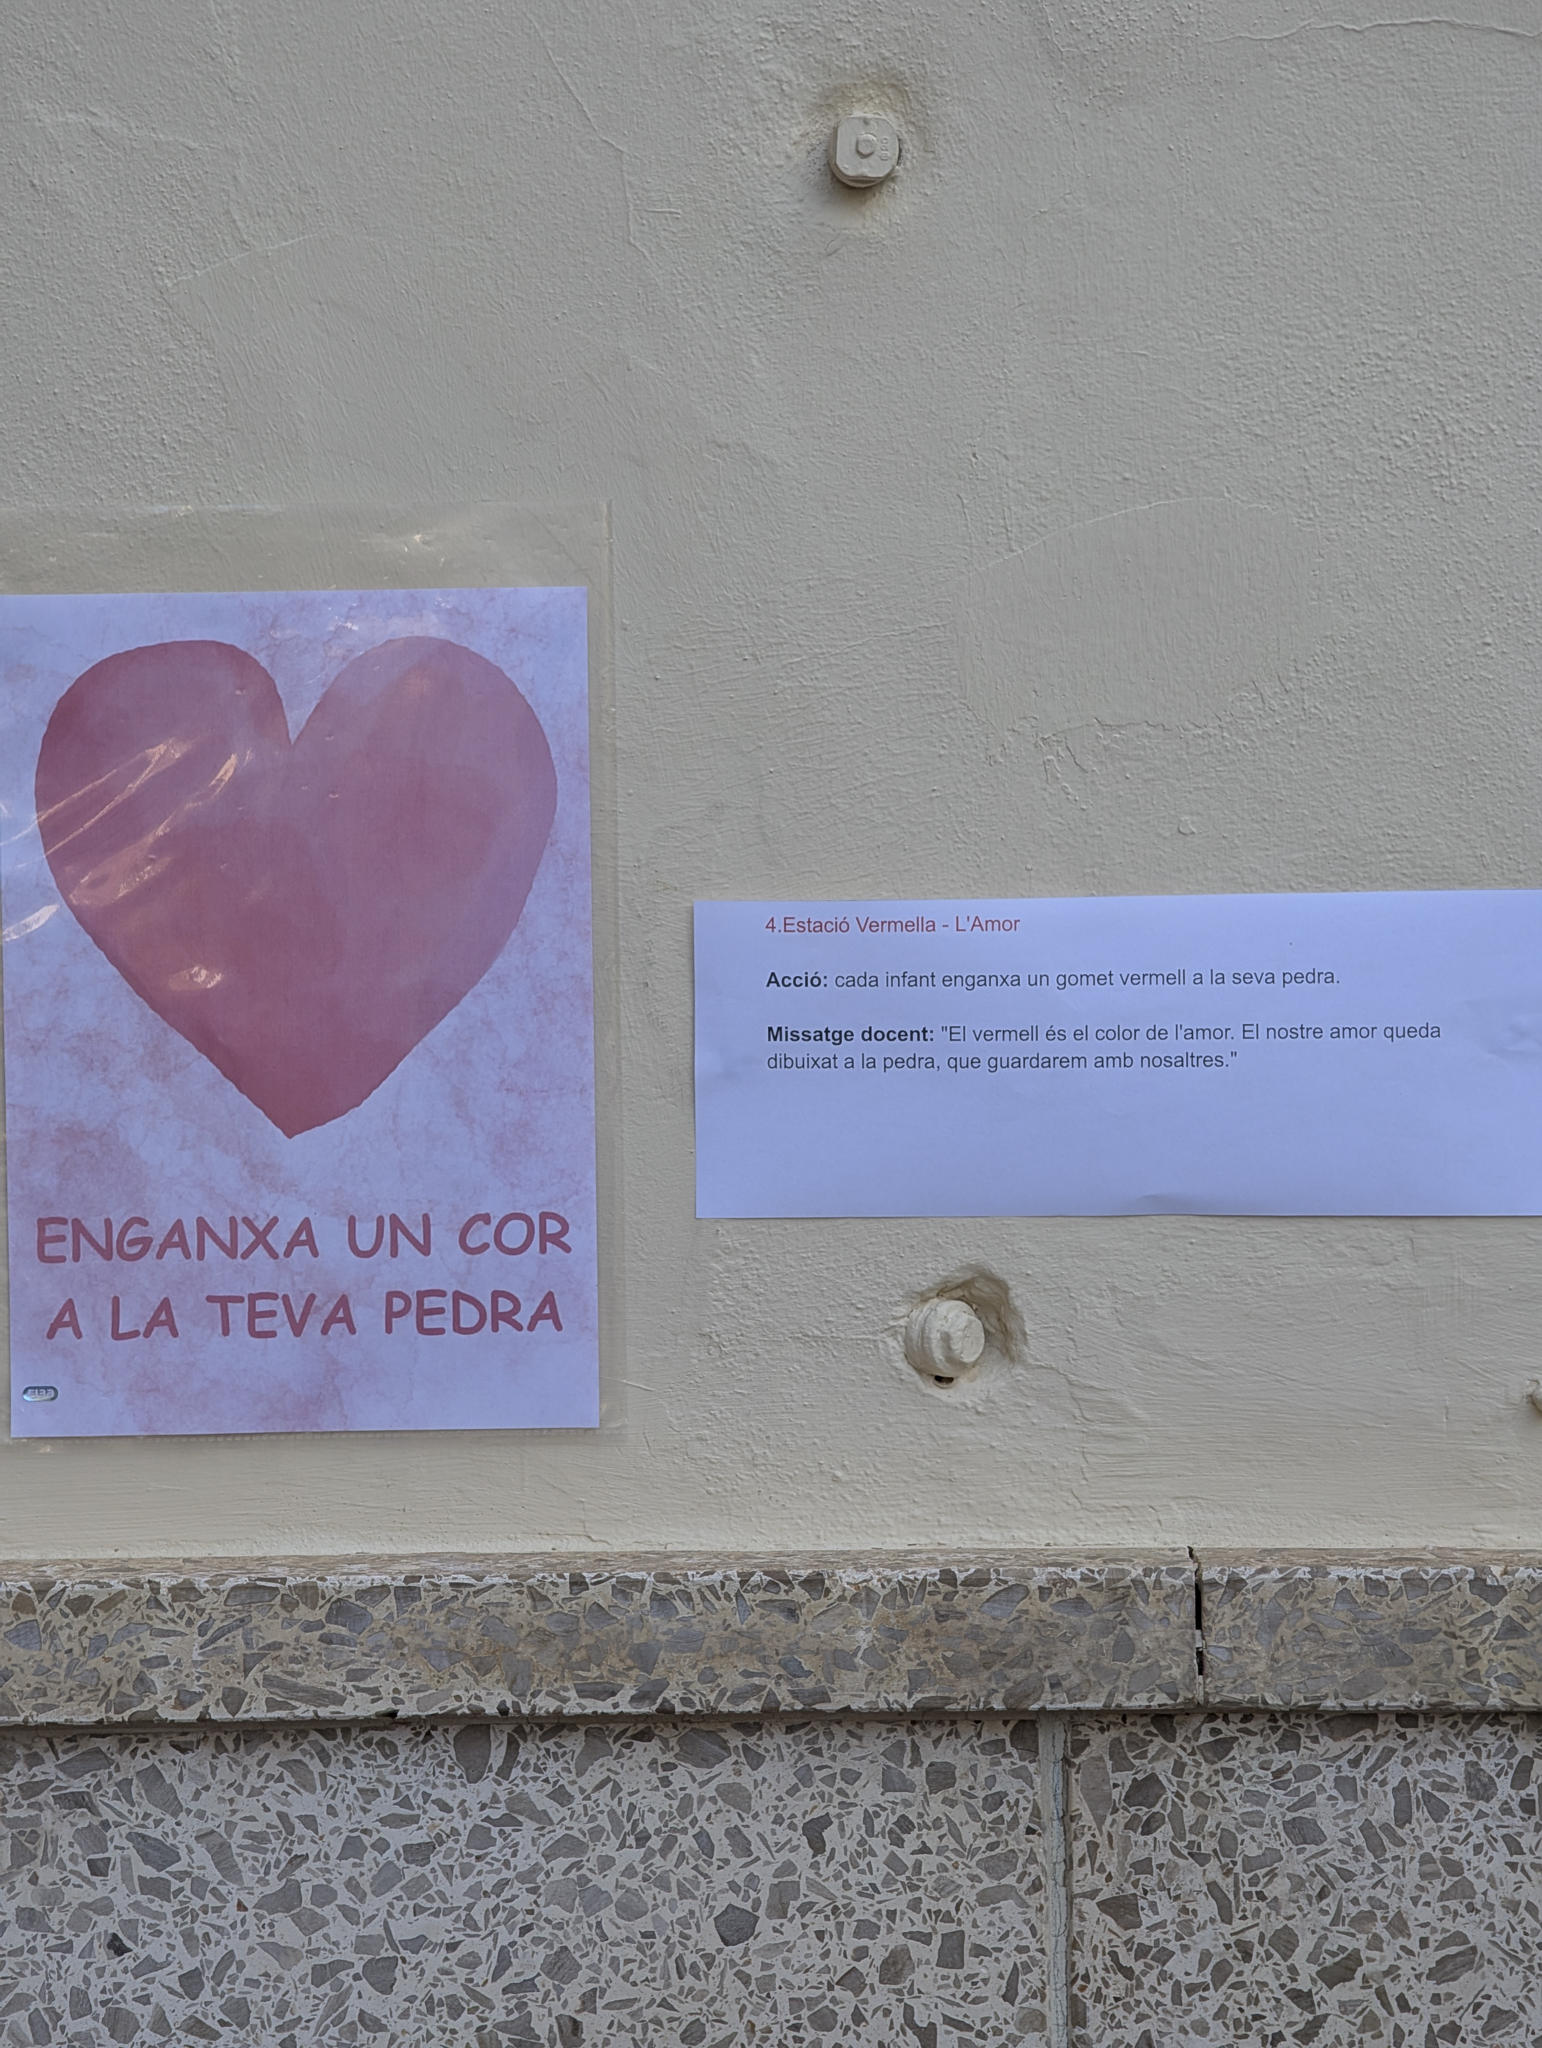 ENGANXA UN COR
A LA TEVA PEDRA
4.Estació Vermella - L'Amor
Acció: cada infant enganxa un gomet vermell a la seva pedra.
Missatge docent: "El vermell és el color de l'amor. El nostre amor queda
dibuixat a la pedra, que guardarem amb nosaltres."